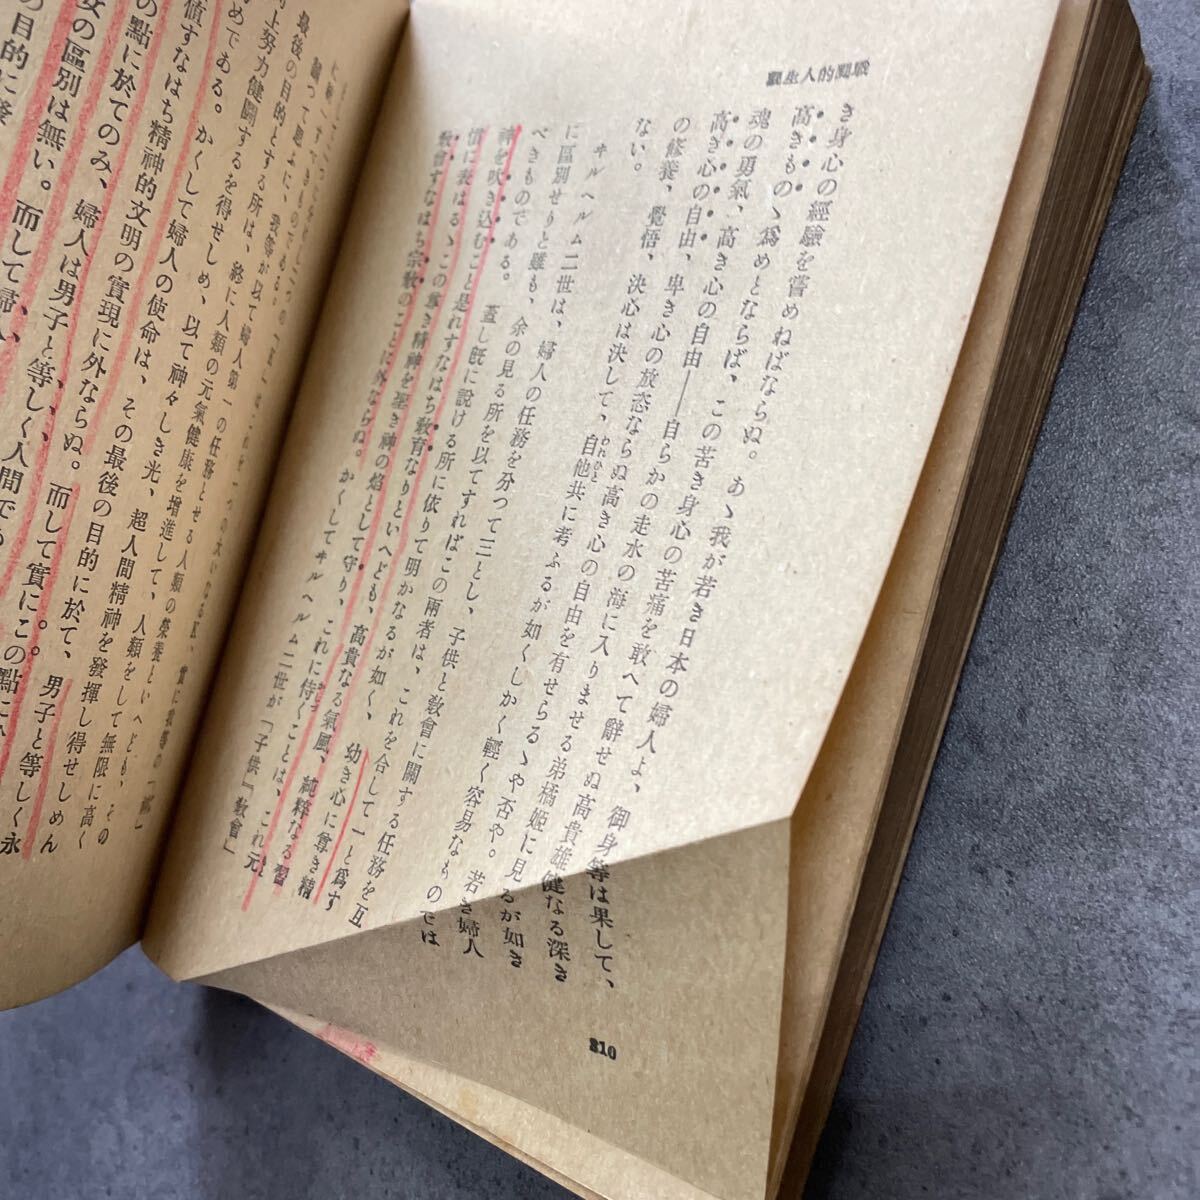 戰鬪的人生觀
き身心の經驗を嘗めねばならぬ。あゝ我が若き日本の婦人よ、御身等は果して、
高きものゝ爲めとならば、この苦き身心の苦痛を敢へて辭せぬ高貴雄健なる深き
魂の勇氣、高き心の自由、卑き心の放恣ならぬ高き心の自由を有せらるゝや否や。若き婦人
高き心の自由――自らかの走水の海に入りませる弟橘姬に見るが如き
の修養、覺悟、決心は決して、自他共に考ふるが如くしかく輕く容易なものでは
ない。
ヰルヘルム二世は、婦人の任務を分つて三とし、子供と敎會に關する任務を互
に區別せりと雖も、余の見る所を以てすればこの兩者は、これを合して一と爲す
べきものである。蓋し旣に說ける所に依りて明かなるが如く、幼き心に尊き精
神を吹き込むこと是れすなはち敎育なりといへども、高貴なる氣風、純粹なる習
慣に表はるゝこの尊き精神を聖き神の焰として守り、これに侍くことは、これ元
敎會すなはち宗敎のことに外ならぬ。かくしてヰルヘルム二世が「子供」「敎會」
210
最後の目的とする所は、終に人類の元氣健康を增進して、人類をして無限に高く
向上努力健鬪するを得せしめ、以て神々しき光、超人間精神を發揮し得せしめん
めである。かくして婦人の使命は、その最後の目的に於て、男子と等しく永
値すなはち精神的文明の實現に外ならぬ。而して實にこの點に
の點に於てのみ、婦人は男子と等しく人間で
女の區別は無い。而して婦人
の目的に